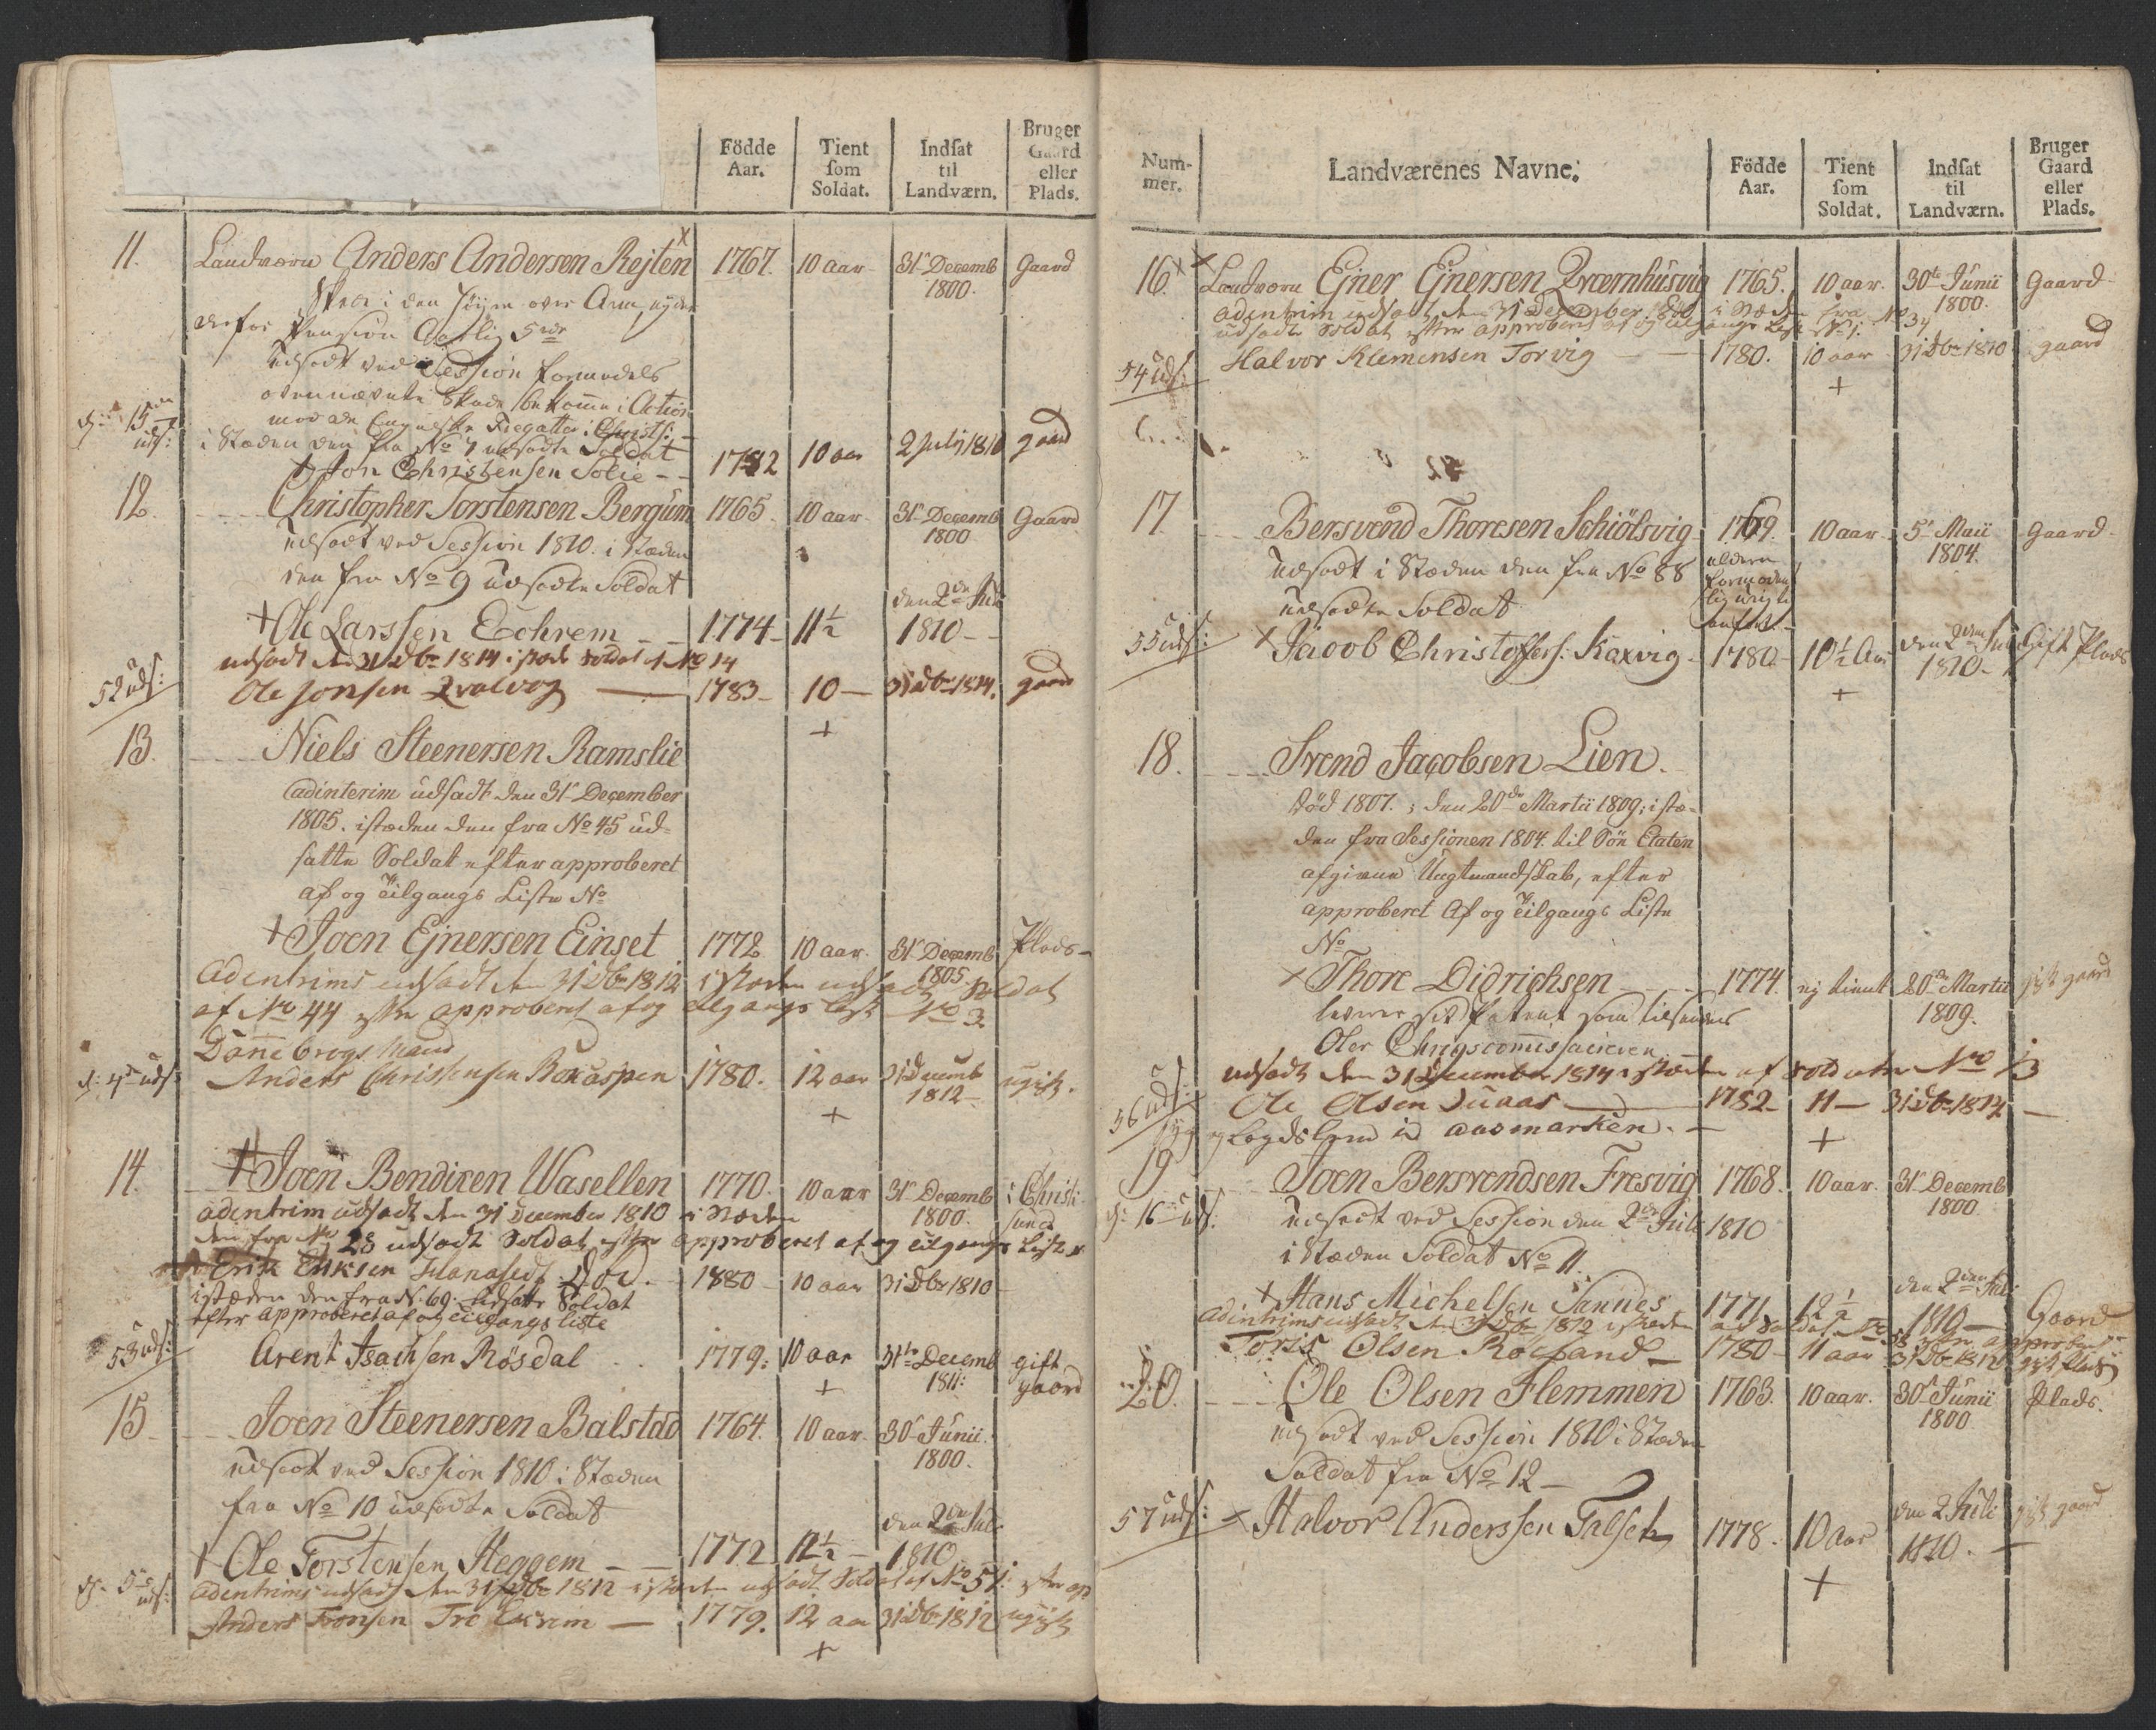 Födde Aar.
Tient som Soldat.
Indsat til Landværn.
Bruger Gaard eller Plads.
11. Landværn Anders Andersen Rejten 1767. 10 aar 31 Decemb 1800. Gaard
Skea i den höyre over Arm, nyder
derfor Pension Aarlig 5 rdr
udsadt ved Session formedels
ovennævnte Skade bekomme i Action
mod de Engelske Fregatter i Christs:
i Stæden den fra No 7 udsadte Soldat
Jon Christensen Solie - - 1782 10 aar 2 July 1810 gaard
12. Christopher Torstensen Bergum 1765. 10 aar 31 Decemb 1800 Gaard
udsadt ved Session 1810. i Stæden
den fra No 9 udsadte Soldat
+ Ole Larssen Echrem - - 1774 - 11½ den 2den Juli 1810 - -
udsadt den 31 Dbr 1814 i stæd soldat af No 14
52 uds: Ole Jonsen Qvalvog 1783 - 10 - 31 Dbr 1814. gaard
+
13. Niels Steenersen Ramslie
adinterim udsadt den 31 December
1805. istæden den fra No 45 ud-
satte Soldat efter approberet
af og tilgangs Liste No
+ Joen Ejnersen Einset 1772 10 aar. 31 Decemb 1805. Plads -
adentrims udsadt den 31 Dbr 1812 i stæden udsadt soldat
af No 44 efter approberet af og tilgangs list No 3
Dannebrogs Mand
Anders Christensen Boxaspen 1780. 12 aar 31 Decemb 1812 - ugift.
+
14. Joen Bendixen Wasellen 1770. 10 aar 31 Decemb 1800. i Christi sund
adentrim udsadt den 31 December 1810 i stæden
den fra No 28 udsadt Soldat efter approberet af og tilgangs Liste
Erik Eriksen Død. 1880 - 10 aar 31 Dbr 1810 -
istæden den fra N. 69. udsatte Soldat
efter approberet af og tilgangs liste
53 uds: Arent Isachsen Rösdal 1779: 10 aar 31te Decemb 1811: gift gaard
+
15. Joen Steenersen Balstad 1764. 10 aar. 30 Junii. 1800.
udsadt ved Session 1810 i Stæden
fra No 10 udsadte Soldat
+ Ole Torstensen Heggem - - 1772 12½ - den 2den Juli 1810
adentrims udsadt den 31 Dbr 1812 i stæden udsadt Soldat af No 51: efter ap
Anders Tronsen - 1779. 12 aar 31 Dbr 1812 ugift
+
Num-mer.
Landværenes Navne.
Födde Aar.
Tient som Soldat.
Indsat til Landværn.
Bruger Gaard eller Plads.
16. Landværn Ejner Ejnersen Qværnhusvig 1765. 10 aar. 30te Junii 1800. Gaard
adentrim udsadt den 31 December 1810 i Stæden fra No 34
udsadte Soldat efter approberet af og tilgangs List No 1.
54 uds: Halvor Klemensen Torvig - - 1780. 10 aar 31 Dbr 1810 gaard
+
17. Bersvend Thoresen Schiölsvig 1769. 10 aar 5 Maii 1804. Gaard -
udsadt i Stæden den fra No 88
udsadte Soldat
alderen formodentlig urigtig anført.
55 uds: + Jacob Christoffers: Kaxvig - 1780 - 10½ Aar den 2den Juli 1810 - Gift Plads
+
18. Svend Jacobsen Lien.
död 1807.; den 20de Martii 1809; istæ-
den fra Sessionen 1804 til Söe Etaten
afgivne Ungtmandskab, efter
approberet Af og tilgangs Liste
No
+ Thore Didrichsen - - 1774. ej tient 20de Martii 1809. gift gaard
leverer sit Patent som tilsendes
Ober Chrigscommissairen.
udsadt den 31 December 1814 i stæden af soldaten No 13
56 uds: Ole Olsen Duaas 1782 - 11 - 31 Dbr 1814 -
+
19 Joen Bersvendsen Fresvig 1768. 10 aar. 31 Decemb 1800.
udsadt ved Session den 2den Juli 1810
i Stæden Soldat No 11.
+ Hans Michelsen Sandes 1771 12½ den 2den Juli 1810 - Gaard
adentrims udsadt den 31 Dbr 1812 i stæden af soldat No 58 efter approberet
Toris Olsen Roesand - 1780 - 11 aar 31 Dbr 1812 gift Plads
20. Ole Olsen Flemmen 1763. 10 aar. 30 Junii 1800 Plads.
udsadt ved Session 1810 i Stæden
Soldat fra No 12 -
57 uds: + Halvor Anderssen Talset 1778. 10 Aar den 2 Juli 1810. - gift gaard
+